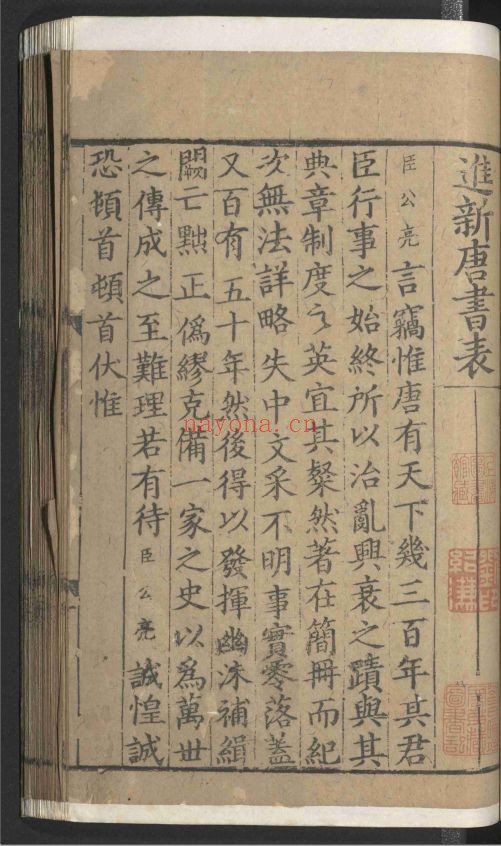 進新唐書表
臣公亮言竊惟唐有天下幾三百年其君
臣行事之始終所以治亂興衰之蹟與其
典章制度之英宜其粲然著在簡冊而紀
次無法詳略失中文采不明事實零落蓋
又百有五十年然後得以發揮幽沬補緝
闕亡黜正偽繆克備一家之史以為萬世
之傳成之至難理若有待臣公亮誠惶誠
恐頓首頓首伏惟
nayona.cn